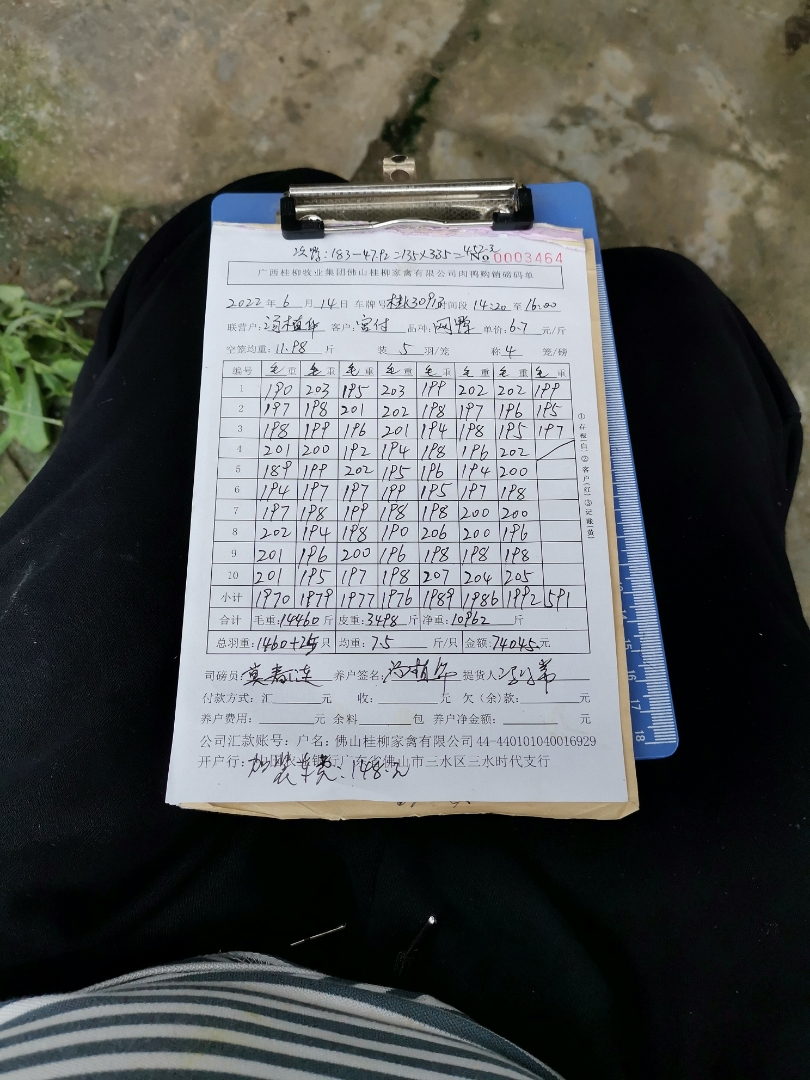 次鸭:183-47.92=135×3.35=452.3
No 0003464
广西桂柳牧业集团佛山桂柳家禽有限公司肉鸭购销磅码单
2022年6月14日 车牌号 时间段14:20至16:00
联营户:汤植华 客户:宝付 品种:网鸭 单价:6.7元/斤
空笼均重:11.98斤 装5羽/笼 称4笼/磅
编号 毛重 毛重 毛重 毛重 毛重 毛重 毛重 毛重
1 190 203 195 203 199 202 202 199
2 197 198 201 202 198 197 196 195
3 198 199 196 201 194 198 195 197
4 201 200 192 194 198 196 202
5 189 199 202 195 196 194 200
6 194 197 197 199 195 197 198
7 197 198 199 198 198 200 200
8 202 194 198 190 206 200 196
9 201 196 200 196 198 198 198
10 201 195 197 198 207 204 205
小计 1970 1979 1977 1976 1989 1986 1992 591
合计 毛重:14460斤 皮重:3498斤 净重:10962斤
总羽重:1460+ 只 均重:7.5斤/只 金额:74045.元
司磅员: 养户签名:汤植华 提货人:
付款方式:汇 元 收: 元 欠(余)款: 元
养户费用: 元 余料 包 养户净金额: 元
公司汇款账号:户名:佛山桂柳家禽有限公司44-440101040016929
开户行: 广东省佛山市三水区三水时代支行
加装车费:148元
①存根(白)②客户(红)③记账(黄)
14
15
16
17
18